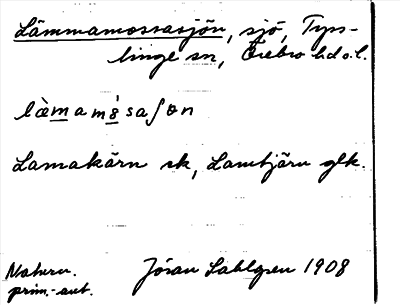 Lämmamossasjön, sjö, Tyss-
linge sn, Örebro hd o. l.
Lamakärn sk, Lamtjärn glk.
Naturn.
prim.-aut.
Jöran Sahlgren 1908